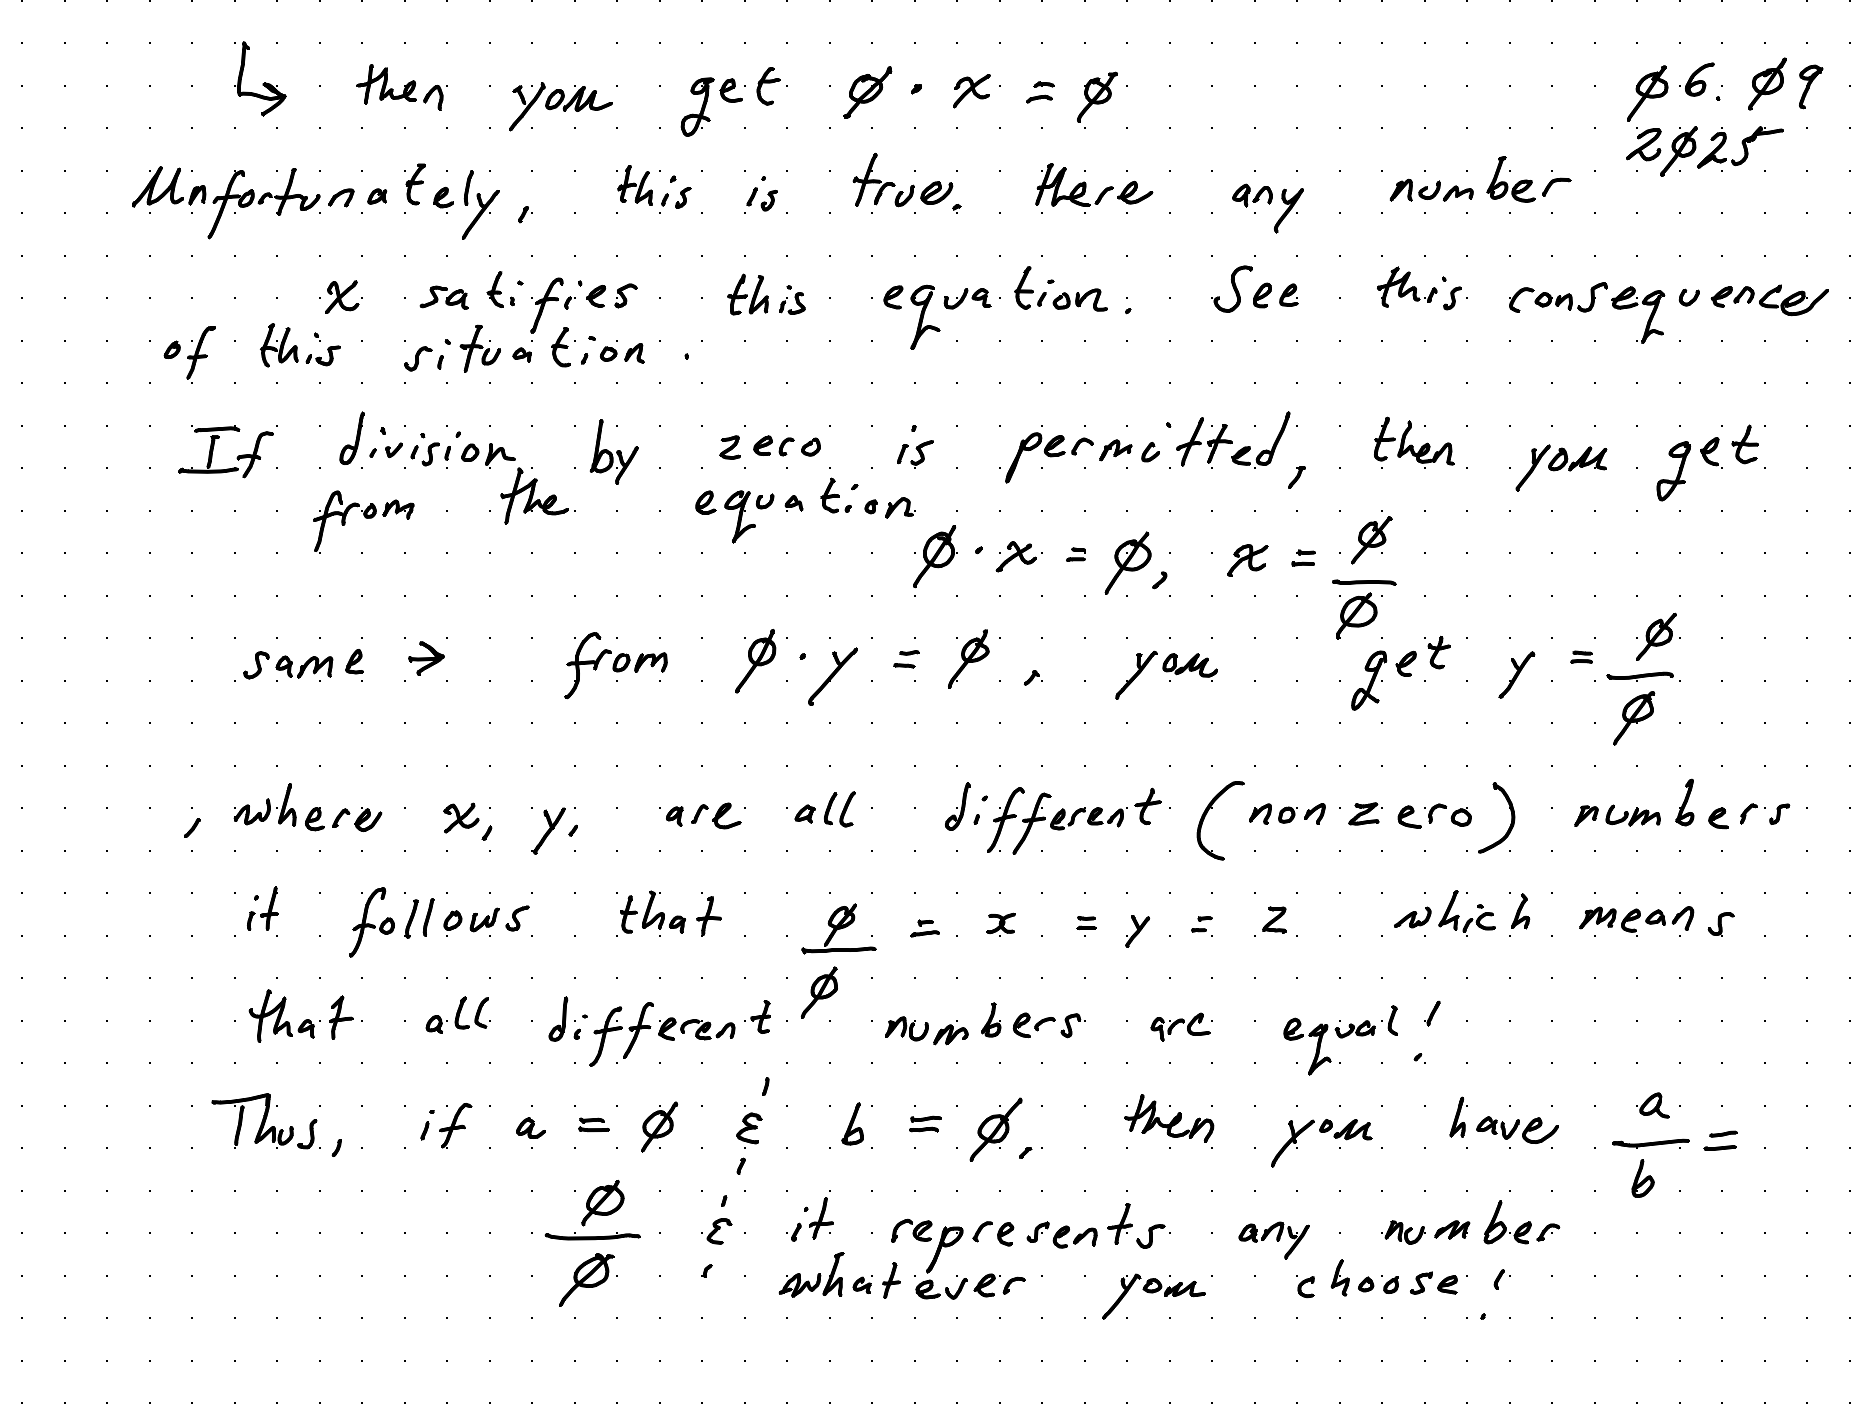 ↳ then you get 0 · x = 0
06.09
2025
Unfortunately, this is true. there any number
x satifies this equation. See this consequence
of this situation.
If division by zero is permitted, then you get
from the equation
0 · x = 0, x = 0/0
same → from 0 · y = 0, you get y = 0/0
, where x, y, are all different (nonzero) numbers
it follows that 0/0 = x = y = z which means
that all different numbers are equal!
Thus, if a = 0 & b = 0, then you have a/b =
0/0 & it represents any number
whatever you choose!